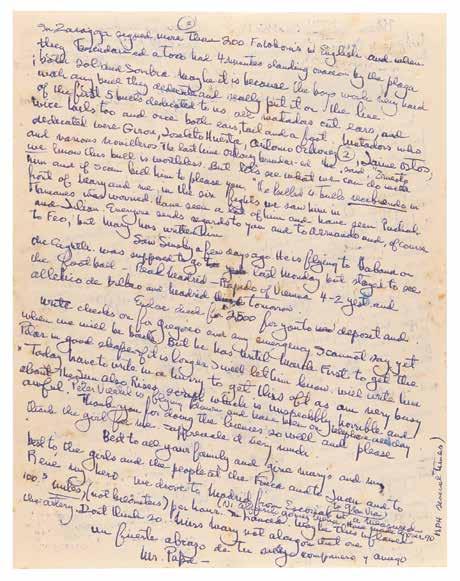 (2)
In Zaragoza signed more than 200 Fotobonis in English and when
they brindared a toro had 4 minutes standing ovation by the plaza
both sol and Sombra. Maybe it is because the boys work very hard
with any bull they dedicate and really put it on the line
of the first 5 bulls dedicated to us all matadors cut ears, and
twice tails too and once both ears, tail and a foot. Matadors who
dedicated were Giron, Joselito Huerta, Antonio Ordonez (2), Jaime Ostos
and various novilleros. The last time Ordonez said, Ernesto
we know this bull is worthless. But let's see what we can do with
him and if I can kill him to please you. He killed 4 bulls recibiendo in
front of Mary and me, in the six fights we saw him in
have seen a lot of him and have seen
and Julian. Everyone sends regards to you and to Fernando and, of course
to Feo, but Mary has written him
Saw Sinsky a few days ago. He is flying to Habana on
the eighth. Was supposed to go last Monday but stayed to see
the football - Real Madrid - Rapide of Vienna 4-2 yest and
atletico de bilbao and Madrid tomorrow
Enclose check for 2500 for you to deposit and
write checks on for Gregorio and any emergency. I cannot say yet
when we will be back. But he has until March First to get the
Pilar in good shape. If it is longer I will let him know. Will write him
Today. Have to write in a hurry to get this off as am very busy
about The Sun Also Rises script which is unspeakably horrible and
awful. Peter Viertel is flying down and have been on telephone all day
Thank you for doing the licenses so well and please
thank the girl for me. Appreciate it very much
Best to all your family and give Marys and my
best to the girls and the people at the Finca and to Juan and to
Rene my hero. We drove to Madrid from Escorial at a measured
100.5 miles (not kilometers) per hour.
the artery. Don't think so. Miss Mary not along that one
un fuerte abrazo de tu viejo companero y amigo
Mr. Papa -
MPH several times